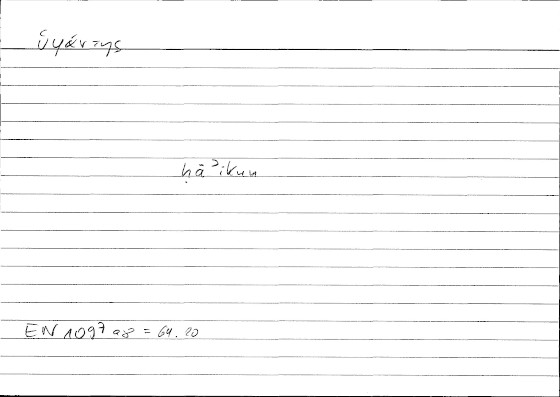 ὑφάντης
ḥāʾikun
EN 1097 a8 = 64.20